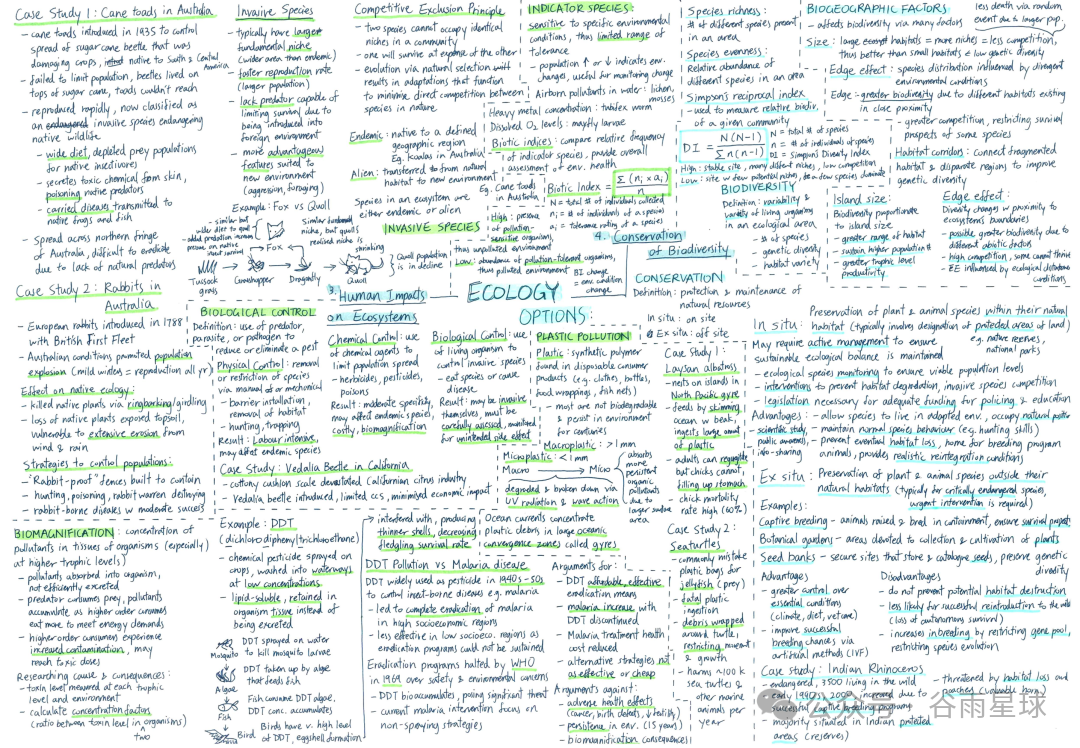 Case Study 1: Cane toads in Australia
- cane toads introduced in 1935 to control
spread of sugar cane beetle that was
damaging crops, native to South & Central
America
- failed to limit population, beetles lived on
tops of sugar cane, toads couldn't reach
- reproduced rapidly, now classified as
an invasive species endangering
native wildlife
- wide diet, depleted prey populations
for native insectivores
- secretes toxic chemical from skin,
poisoning native predators
- carried diseases transmitted to
native frogs and fish
- Spread across northern fringe
of Australia, difficult to eradicate
due to lack of natural predators
Case Study 2: Rabbits in
Australia
- European rabbits introduced in 1788
with British First Fleet
- Australian conditions promoted population
explosion (mild winters = reproduction all yr)
Effect on native ecology:
- killed native plants via ringbarking/girdling
- loss of native plants exposed topsoil,
vulnerable to extensive erosion from
wind & rain
Strategies to control populations:
- "Rabbit-proof" fences built to contain
- hunting, poisoning, rabbit warren destroying
- rabbit-borne diseases w moderate success
BIOMAGNIFICATION: concentration of
pollutants in tissues of organisms (especially
at higher trophic levels)
- pollutants absorbed into organism,
not efficiently excreted
- predator consumes prey, pollutants
accumulate as higher order consumers
eat more to meet energy demands
- higher order consumers experience
increased contamination, may
reach toxic doses
Researching cause & consequences:
- toxin level measured at each trophic
level and environment
- calculate concentration factors
(ratio between toxin level in organisms)
two
Invasive Species
- typically have larger
fundamental niche
(wider area than endemic)
- faster reproduction rate
(larger population)
- lack predator capable of
limiting survival due to
being introduced into
foreign environment
- more advantageous
features suited to
new environment
(aggression, foraging)
Example: Fox vs Quoll
Fox
shrinking
Quoll population
is in decline
Tussock
grass
Grasshopper
Dragonfly
Quoll
BIOLOGICAL CONTROL
Definition: use of predator,
parasite, or pathogen to
reduce or eliminate a pest
Physical Control: removal
or restriction of species
via manual or mechanical
- barrier installation,
removal of habitat
- hunting, trapping
Result: Labour intensive,
may affect endemic species
Case Study: Vedalia Beetle in California
- cottony cushion scale devastated Californian citrus industry
- Vedalia beetle introduced, limited ccs, minimised economic impact
Example: DDT
(dichlorodiphenyltrichloroethane)
- chemical pesticide sprayed on
crops, washed into waterways
at low concentrations
- lipid-soluble, retained in
organism tissue instead of
being excreted
Mosquito
DDT sprayed on water
to kill mosquito larvae
Algae
DDT taken up by algae
that feeds fish
Fish
Fish consume DDT algae.
DDT conc. accumulates
Bird
Birds have v. high level
of DDT, eggshell formation
Competitive Exclusion Principle
- two species cannot occupy identical
niches in a community
- one will survive at expense of the other
- evolution via natural selection will
results in adaptations that function
to minimise direct competition between
species in nature
Endemic: native to a defined
geographic region
Eg. koalas in Australia
Alien: transferred to from natural
habitat to new environment
Eg. Cane toads
in Australia
Species in an ecosystem are
either endemic or alien
INVASIVE SPECIES
3. Human Impacts
on Ecosystems
ECOLOGY
4. Conservation
of Biodiversity
OPTIONS:
Chemical Control: use
of chemical agents to
limit population spread
- herbicides, pesticides,
poisons
Result: moderate specificity,
may affect endemic species,
costly, biomagnification
Biological Control: use
of living organism to
control invasive species
- eat species or cause
disease.
Result: may be invasive
themselves, must be
carefully assessed, monitored
for unintended side effect
interfered with, producing
thinner shells, decreasing
fledgling survival rate
DDT Pollution vs Malaria disease
DDT widely used as pesticide in 1940s-50s
to control insect-borne diseases e.g. malaria
- led to complete eradication of malaria
in high socioeconomic regions
- less effective in low socioeco. regions as
eradication programs could not be sustained
Eradication programs halted by WHO
in 1969 over safety & environmental concerns
- DDT bioaccumulates, posing significant threat
- current malaria intervention focus on
non-spraying strategies
INDICATOR SPECIES:
sensitive to specific environmental
conditions, thus limited range of
tolerance
- population ↑ or ↓ indicates env.
changes, useful for monitoring change
Airborn pollutants in water: lichen,
mosses
Heavy metal concentration: tubifex worm
Dissolved O2 levels: mayfly larvae
Biotic indices: compare relative frequency
of indicator species, provide overall
assessment of env. health
Biotic Index = Σ(ni × ai) / n
N = total # of individuals collected
ni = # of individuals of a species
ai = tolerance rating of a species
High: presence
of pollution-
sensitive organisms,
thus unpolluted environment
Low: abundance of pollution-tolerant organisms,
thus polluted environment
BI change
= env. condition
change
PLASTIC POLLUTION
Plastic: synthetic polymer
found in disposable consumer
products (e.g. clothes, bottles,
food wrappings, fish nets)
- most are not biodegradable
& persist in environment
for centuries
Macroplastic: >1mm
Microplastic: <1mm
Macro
Micro
degraded & broken down via
UV radiation & wave action
absorbs
more
persistent
organic
pollutants
due to
larger surface
area
Ocean currents concentrate
plastic debris in large oceanic
convergence zones called gyres
Arguments for:
- DDT affordable, effective
eradication means
- malaria increase with
DDT discontinued
- Malaria treatment health
cost reduced
- alternative strategies not
as effective or cheap
Arguments against:
- adverse health effects
(cancer, birth defects, ↓ fertility)
- persistence in env. (15 years)
- biomagnification consequences
Case Study 1:
Laysan albatross
- nests on islands in
North Pacific gyre
- feeds by skimming
ocean w beak,
ingests large amount
of plastic
- adults can regurgitate
but chicks cannot,
filling up stomach
- chick mortality
rate high (60%)
Case Study 2:
Seaturtles
- commonly mistake
plastic bags for
jellyfish (prey)
- fatal plastic
ingestion
- debris wrapped
around turtle,
restricting movement
& growth
- harms ~100k
sea turtles &
other marine
animals per
year
Species richness:
# of different species present
in an area
Species evenness:
Relative abundance of
different species in an area
Simpson's reciprocal index
- used to measure relative biodiv.
of a given community
DI = N(N-1) / Σn(n-1)
N = total # of species
n = # individuals of species
DI = Simpson's Diversity Index
High: stable site, many different niches, low competition
Low: site w few potential niches, few species dominate
BIODIVERSITY
Definition: variability &
variety of living organisms
in an ecological area
- # of species
- genetic diversity
- habitat variety
CONSERVATION
Definition: protection & maintenance of
natural resources
In situ: on site
Ex situ: off site
BIOGEOGRAPHIC FACTORS
- affects biodiversity via many factors
less death via random
event due to larger pop,
Size: large habitats = more niches = less competition,
thus better than small habitats & low genetic diversity
Edge effect: species distribution influenced by divergent
environmental conditions
Edge - greater biodiversity due to different habitats existing
in close proximity
- greater competition, restricting survival
prospects of some species
Habitat corridors: connect fragmented
habitat & disparate regions to improve
genetic diversity
Island size:
Biodiversity proportionate
to island size
- greater range of habitat
- sustain higher population #
- greater trophic level
productivity
Edge effect:
Diversity changes w proximity to
ecosystems boundaries
- possible greater biodiversity due to
different abiotic factors
- high competition, some cannot thrive
- EE influenced by ecological disturbance
conditions
In situ: Preservation of plant & animal species within their natural
habitat (typically involves designation of protected areas of land)
e.g. nature reserves,
national parks
May require active management to ensure
sustainable ecological balance is maintained
- ecological species monitoring to ensure viable population levels
- interventions to prevent habitat degradation, invasive species competition
- legislation necessary for adequate funding for policing & education
Advantages: - allow species to live in adapted env., occupy natural position
- scientific study,
public awareness,
info-sharing
- maintain normal species behaviour (e.g. hunting skills)
- prevent eventual habitat loss, home for breeding program
animals, provides realistic reintegration conditions
Ex situ: Preservation of plant & animal species outside their
natural habitats (typically for critically endangered species,
urgent intervention is required)
Examples:
Captive breeding - animals raised & bred in containment, ensure survival prospects
Botanical gardens - areas devoted to collection & cultivation of plants
Seed banks - secure sites that store & catalogue seeds, preserve genetic
diversity
Advantages
- greater control over
essential conditions
(climate, diet, vetcare)
- improve successful
breeding chances via
artificial methods (IVF)
Disadvantages
- do not prevent potential habitat destruction
- less likely for successful reintroduction to the wild
(loss of autonomous survival)
- increases inbreeding by restricting gene pool,
restricting species evolution
Case study: Indian Rhinoceros
- endangered, 3500 living in the wild
- early 1990s, 2000 increased due to
successful captive breeding programs
- majority situated in Indian protected
areas (reserves)
- threatened by habitat loss and
poachers (valuable horn)
公众号 · 谷雨星球